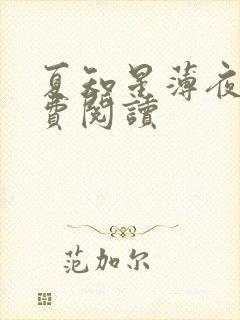 夏知星薄夜
費閱讀
范加尔